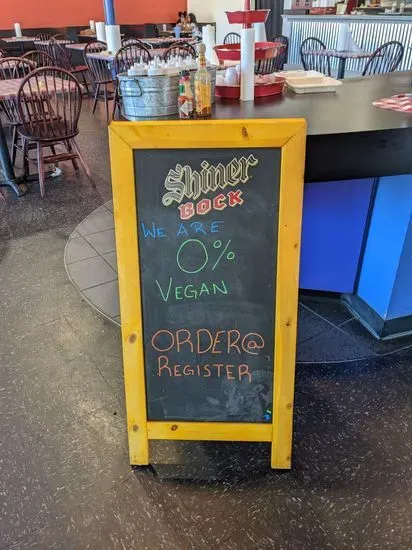 Shiner
BOCK
WE ARE
0%
VEGAN
ORDER@
REGISTER